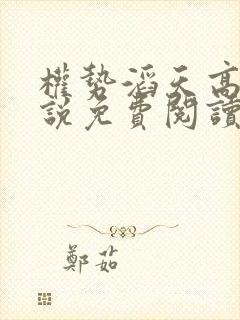 權勢滔天高
說免費閱讀
鄭茹